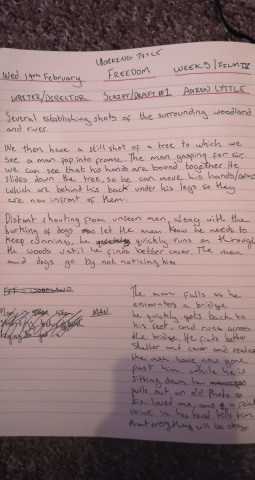 WORKING TITLE
Wed 19th February FREEDOM WEEK 5/FILM TV
WRITER/DIRECTOR SCRIPT/DRAFT#1 AARON LYTTLE
Several establishing shots of the surrounding woodland
and river.
We then have a still shot of a tree to which we
see a man pop into frame. The man gasping for air,
we can see that his hands are bound together. He
slides down the tree, so he can move his hands/arms
which are behind his back under his legs so they
are now infront of him.
Distant shouting from unseen men, along with the
barking of dogs let the man know he needs to
keep running, he quickly runs on through
the woods until he finds better cover. The men
and dogs go by not noticing him.
EXT - WOODLAND
MAN
The man falls as he
encounters a bridge,
he quickly gets back to
his feet, and runs across
the bridge. He finds better
shelter and cover and realises
the men have now gone
past him. while he is
sitting down he
pulls out an old Photo of
his loved one, and a faint
voice in his head tells him
that everything will be okay.